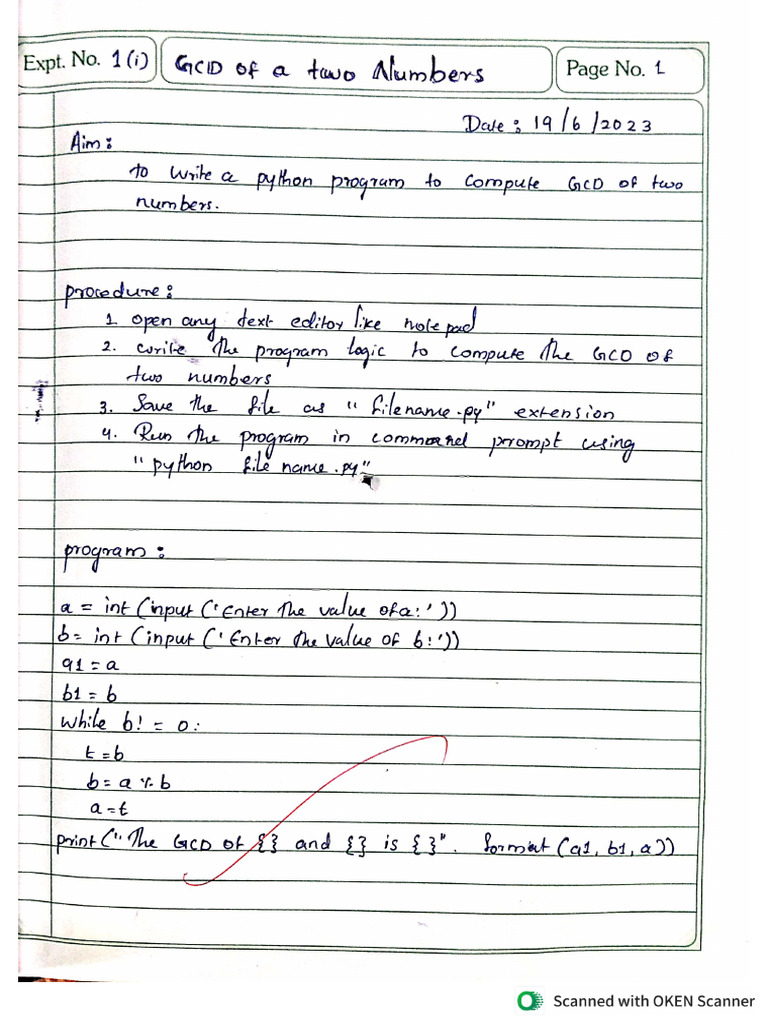 Expt. No. 1(i)
GCD of a two Numbers
Page No. 1
Date: 19/6/2023
Aim:
to write a python program to compute GCD of two
numbers.
procedure:
1. open any text editor like notepad
2. write the program logic to compute the GCD of
two numbers
3. Save the file as "filename.py" extension
4. Run the program in command prompt using
"python file name.py"
program:
a = int(input('Enter the value of a:'))
b = int(input('Enter the value of b:'))
a1 = a
b1 = b
while b! = 0:
t = b
b = a % b
a = t
print("The GCD of {} and {} is {}". format(a1, b1, a))
Scanned with OKEN Scanner